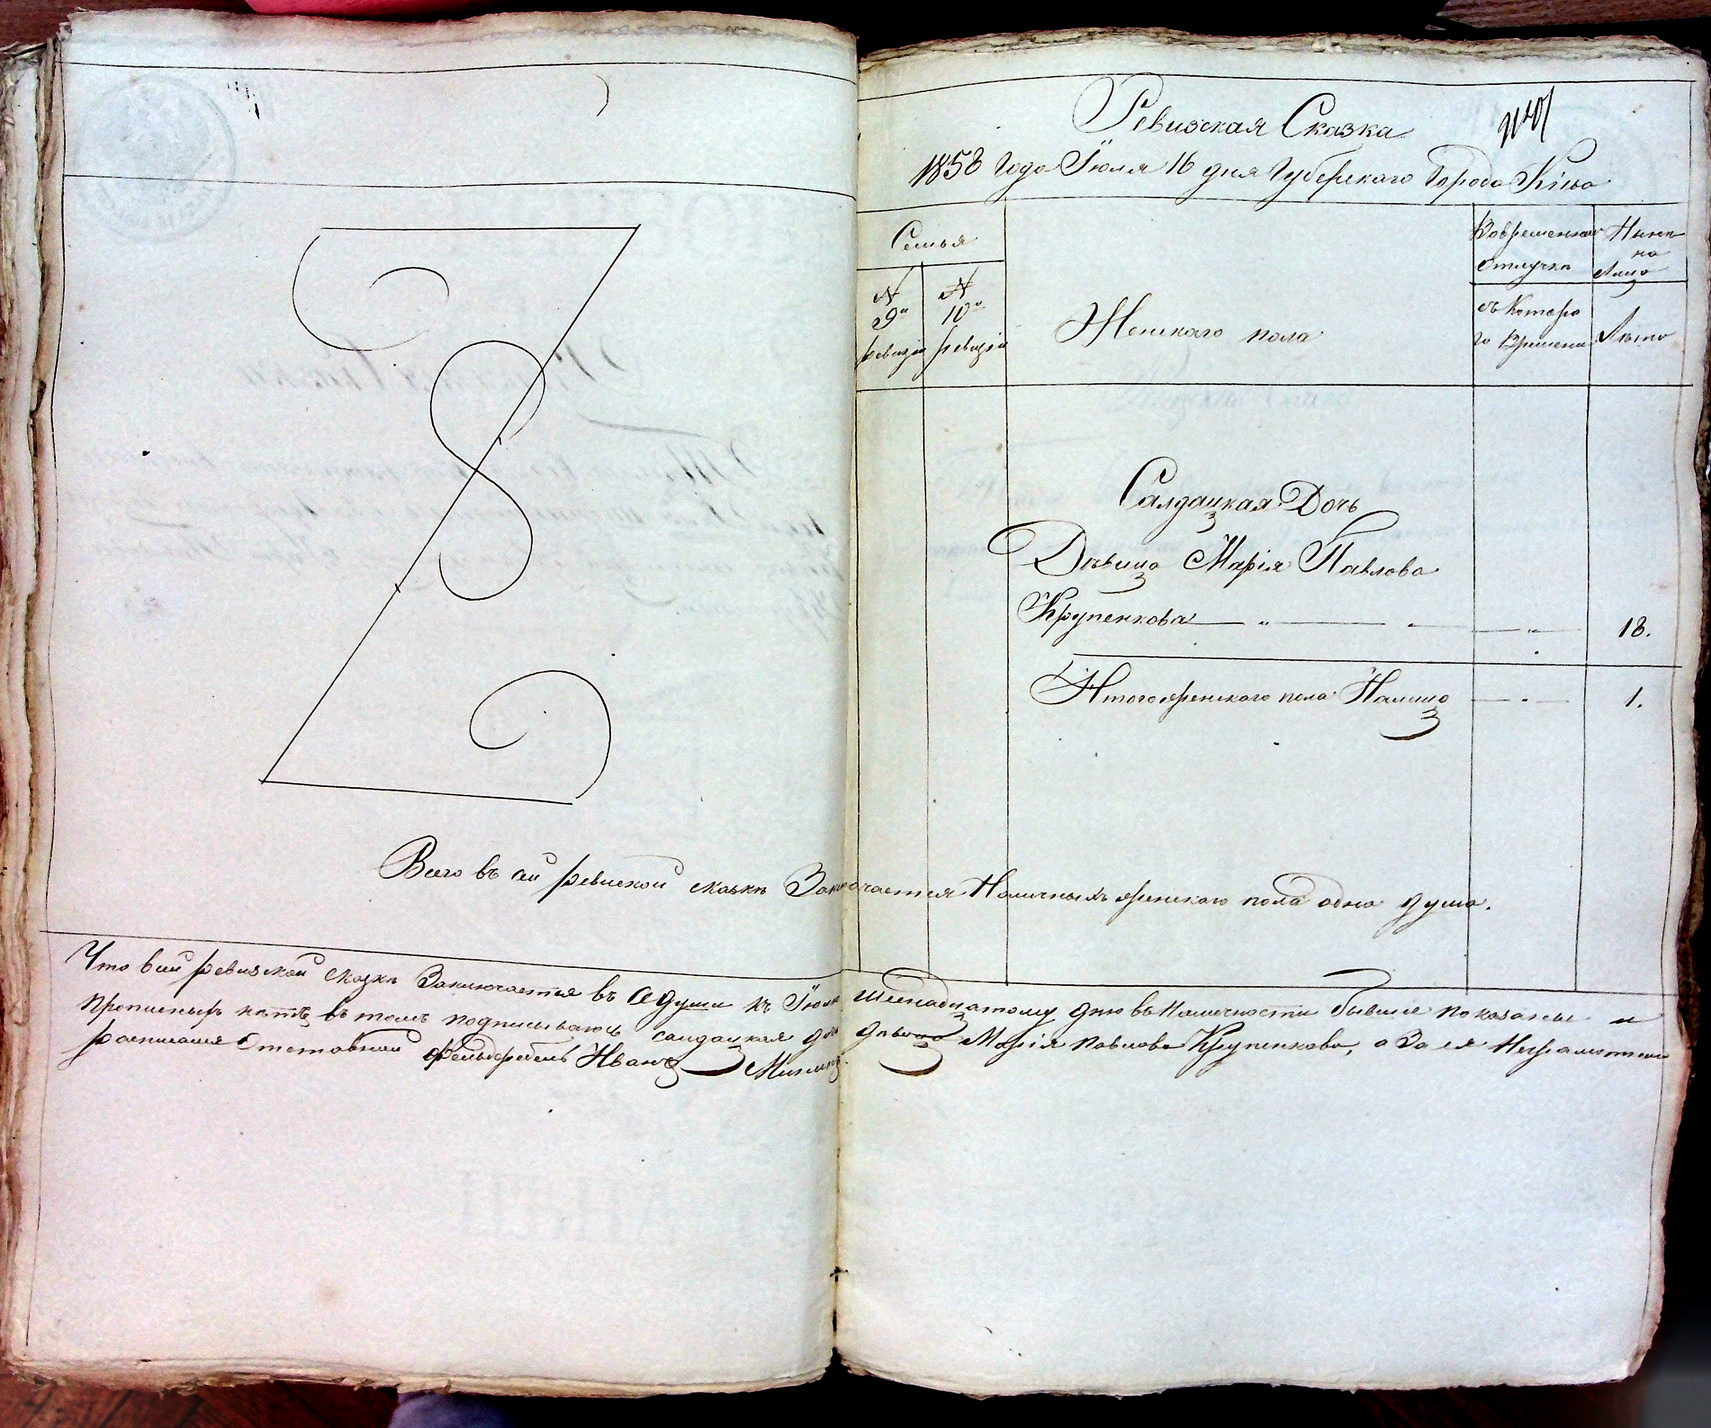 Ревизская Сказка
1858 Года Іюля 16 дня Губернскаго Города Кіева
Семья
Вовременной
отлучке
Ныне
на
лицо
№
9й
ревизіи
№
10й
ревизіи
Женскаго пола
съ котора
го времени
Лета
Салдацкая Дочь
Девица Марія Павлова
Крупенкова — „ — „ — „ — 18.
Итого женскаго пола Налицо — „ — 1.
Всего въ сей ревиской сказке Заключается Наличныхъ женскаго пола одна душа.
Что всей ревизской сказке Заключается въ а души къ Іюля шеснадцатому дню въ Наличности бывшіе показаны и
прописныхъ нетъ, въ томъ подписываюсь салдацкая дочь девица Марія Павлова Крупенкова, а За ея Неграмотную
росписался Отставной фельдфебель Иванъ